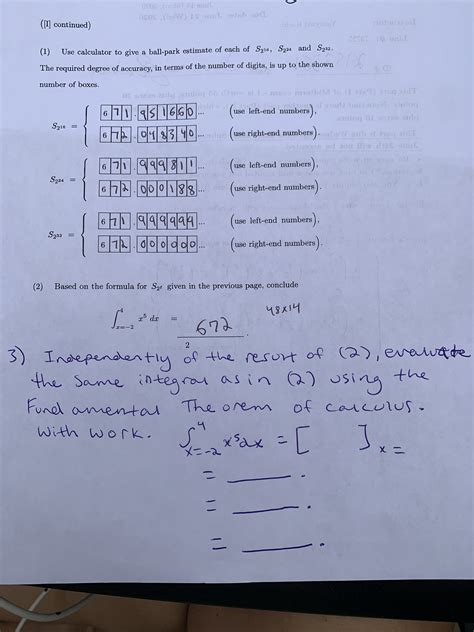 ([I] continued)
(1) Use calculator to give a ball-park estimate of each of S₂16, S₂24 and S₂32.
The required degree of accuracy, in terms of the number of digits, is up to the shown
number of boxes.
S₂16 = { 6 7 1 . 9 5 1 6 6 0 ... (use left-end numbers),
6 7 2 . 0 4 8 3 4 0 ... (use right-end numbers).
S₂24 = { 6 7 1 . 9 9 9 8 1 1 ... (use left-end numbers),
6 7 2 . 0 0 0 1 8 8 ... (use right-end numbers).
S₂32 = { 6 7 1 . 9 9 9 9 9 9 ... (use left-end numbers),
6 7 2 . 0 0 0 0 0 0 ... (use right-end numbers).
(2) Based on the formula for S₂ℓ given in the previous page, conclude
48x14
∫⁴ₓ₌₋₂ x⁵ dx = 672 .
2
3) Independently of the result of (2), evaluate
the same integral as in (2) using the
Fundamental Theorem of calculus.
With work. ∫⁴ₓ₌₋₂ x⁵dx = [ ]ₓ₌
= ____ .
= ____ .
= ____ .